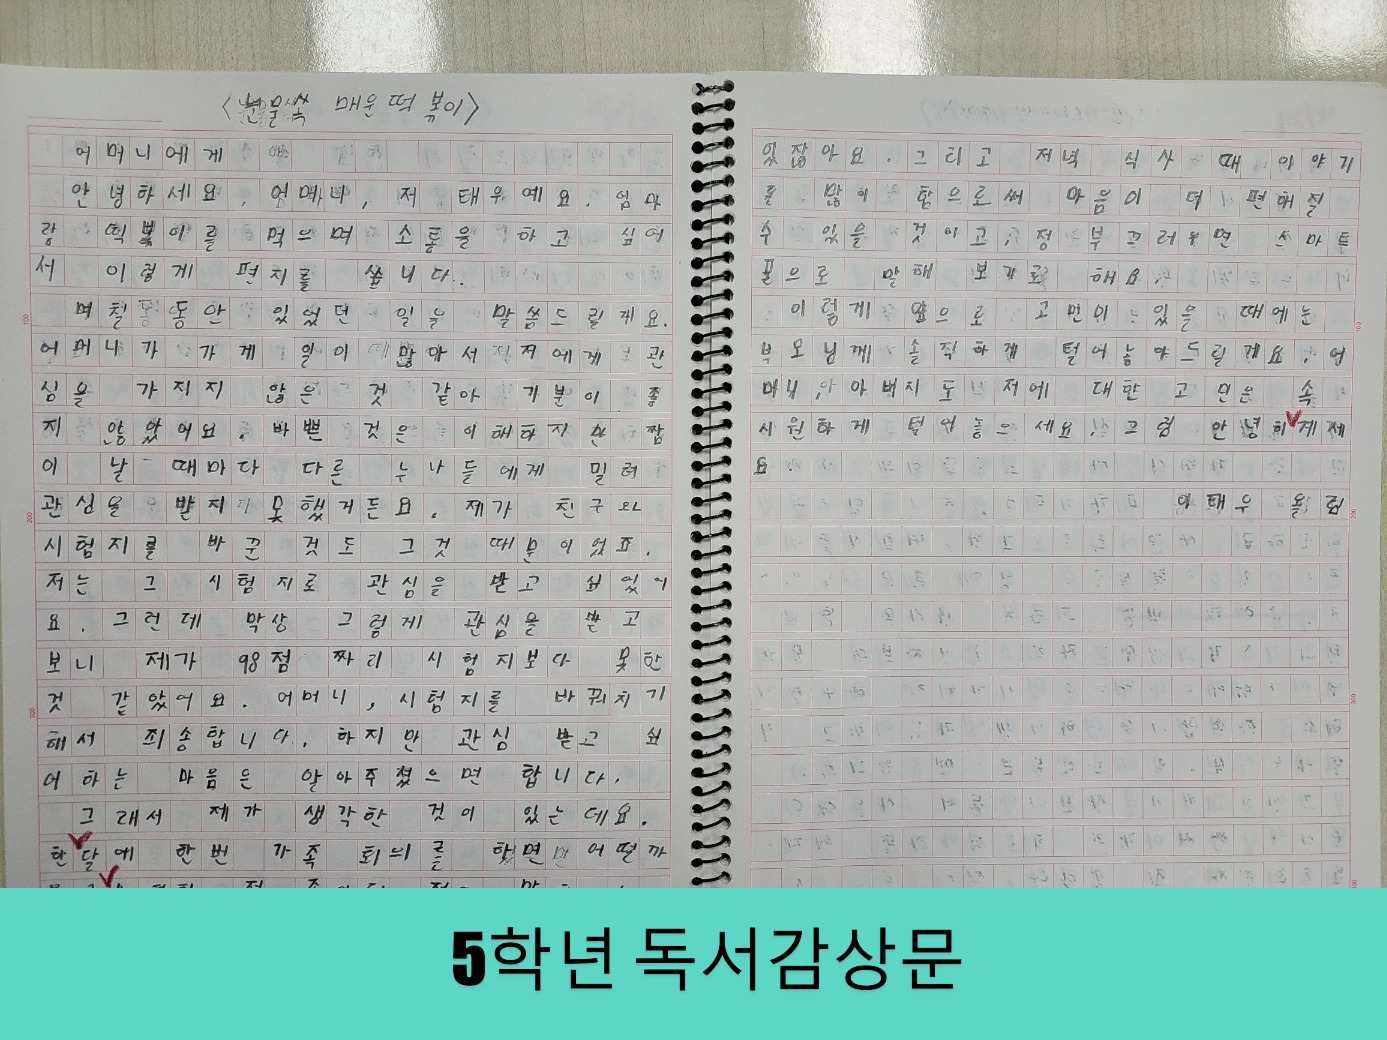 <눈물쏙 매운떡볶이>
어머니에게
안녕하세요, 어머니, 저 태우예요. 엄마
랑 떡볶이를 먹으며 소통을 하고 싶어
서 이렇게 편지를 씁니다.
며칠동안 있었던 일을 말씀드릴게요.
어머니가 가게 일이 많아서 저에게 관
심을 가지지 않은 것 같아 기분이 좋
지 않았어요. 바쁜 것은 이해하지만 짬
이 날 때마다 다른 누나들에게 밀려
관심을 받지 못했거든요. 제가 친구와
시험지를 바꾼 것도 그것 때문이었죠.
저는 그 시험지로 관심을 받고 싶었어
요. 그런데 막상 그렇게 관심을 받고
보니 제가 98점 짜리 시험지보다 못한
것 같았어요. 어머니, 시험지를 바꿔치기
해서 죄송합니다. 하지만 관심 받고 싶
어 하는 마음은 알아주셨으면 합니다.
그래서 제가 생각한 것이 있는데요.
한달에 한번 가족 회의를 하면 어떨까
있잖아요. 그리고 저녁 식사 때 이야기
를 많이 함으로써 마음이 더 편해질
수 있을 것이고, 정 부끄러우면 스마트
폰으로 말해 보기로 해요.
이렇게 앞으로 고민이 있을 때에는
부모님께 솔직하게 털어놓아드릴게요. 어
머니, 아버지도 저에 대한 고민은 속
시원하게 털어놓으세요! 그럼 안녕히계세
요.
이태우 올림
5학년 독서감상문